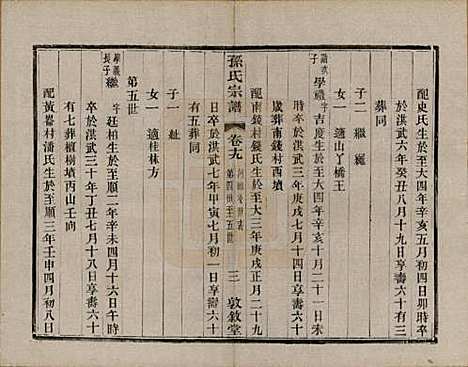 配史氏生於至大四年辛亥五月初四日卯時卒
於洪武六年癸丑八月十九日享壽六十有三
葬同
子二 繼 寵
女一 適山丫橋王
學禮字吉慶生於至大四年辛亥十月二十一日未
時卒於洪武三年庚戌七月十四日享壽六十
歲葬南錢村墳西
配南錢村錢氏生於至大三年庚戌正月二十九
日卒於洪武七年甲寅七月初一日享壽六十
有五葬同
子一 祉
女一 適桂林方
孫氏宗譜
卷十九
第四世至五世
三
敦敘堂
第五世
學義長子
繼字廷柏生於至順二年辛未四月十六日午時
卒於洪武三十年丁丑七月十八日享壽六十
有七葬檀樹墳丙山壬向
配黃崙村潘氏生於至順三年壬申四月初八日